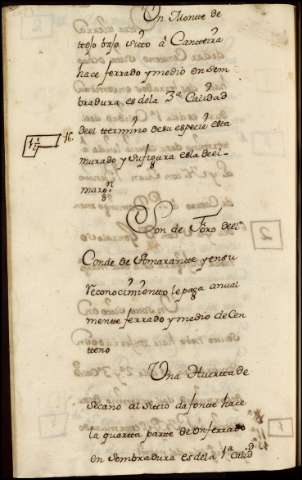 Un Monte de
tojo bajo sitto â Canteira
hace ferrado y medio en sem
bradura es de la 3ª Calidad
deel termino de su especie esta
murado y su figura es la deel
margn
Son de Foro deel
Conde de Amarante y en su
Reconocimiento le paga anual
mente ferrado y medio de Cen
tteno
Una Huertta de
Secano al sittio da fonte hace
la quartta parte de un ferrado
en Sembradura es de la 1ª Calid
2